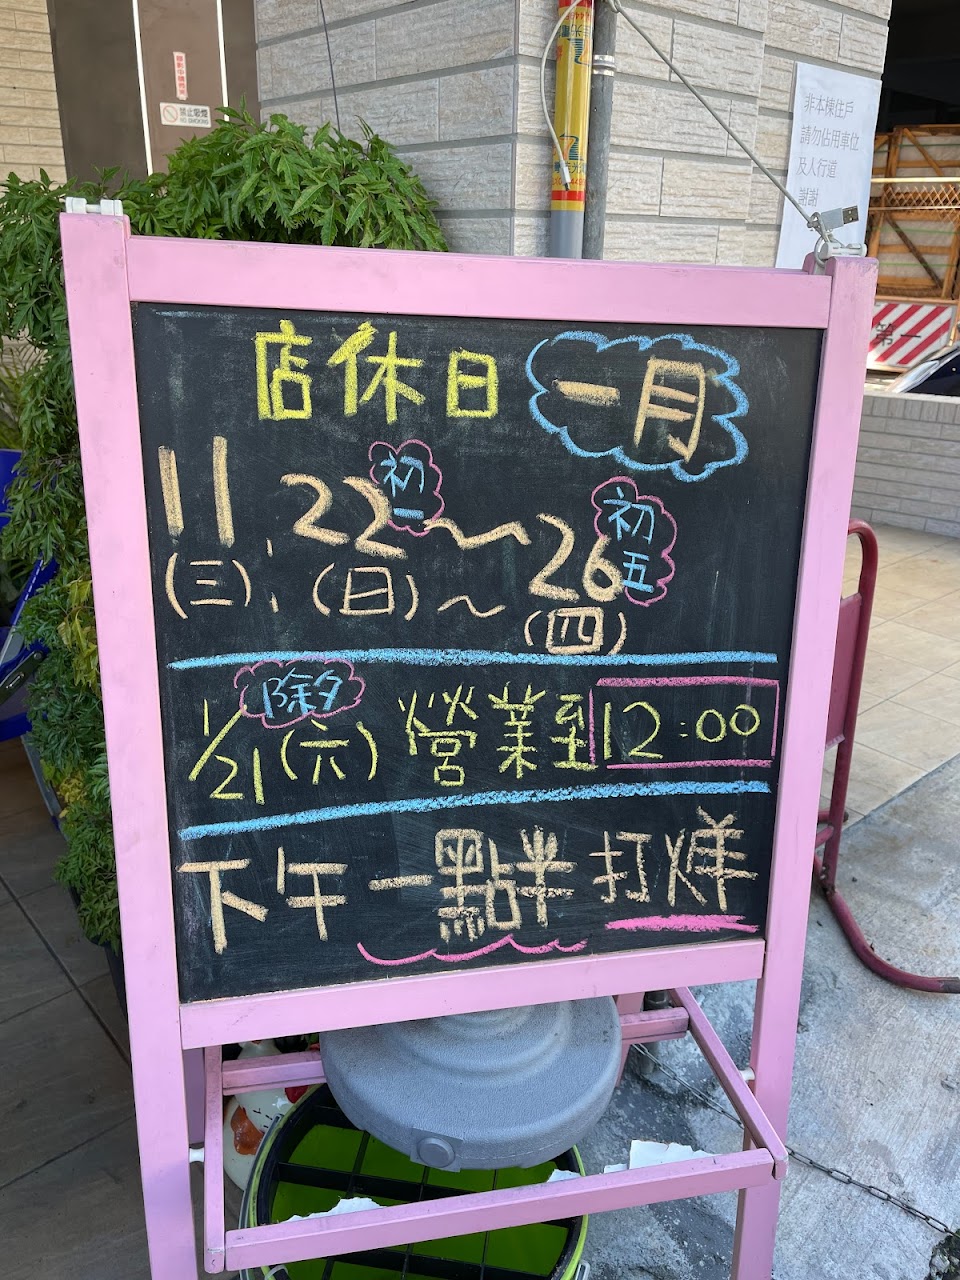 禁止吸煙
NO SMOKING
非本棟住戶
請勿佔用車位
及人行道
謝謝
第一
店休日 一月
11 22初一～26初五
(三), (日)～(四)
1/21(六)除夕 營業到12:00
下午一點半打烊